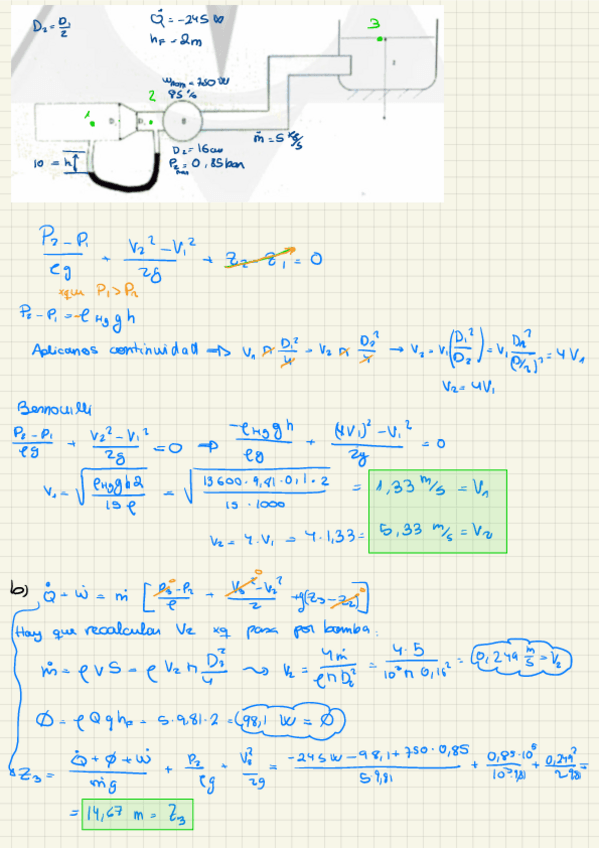 D₂ = D₁/2
Q̇ = -245 W
h_F = 2m
Ẇ_bomba = 750 W
85 %
3
1
2
10 = h
D₂ = 16cm
P₂ = 0,85bar
ṁ = 5 kg/s
(P₂ - P₁)/ρg + (V₂² - V₁²)/2g + Z₂ - Z₁ = 0
xque P₁ > P₂
P₂ - P₁ = -ρHg g h
Aplicamos continuidad ⇒ V₁ π D₁²/4 = V₂ π D₂²/4 → V₂ = V₁(D₁²/D₂²) = V₁ D₁²/(D₁/2)² = 4V₁
V₂ = 4V₁
Bernouilli
(P₂ - P₁)/ρg + (V₂² - V₁²)/2g = 0 ⇒ -ρHg g h/ρg + ((4V₁)² - V₁²)/2g = 0
V₁ = √(ρHg g h 2/15 ρ) = √(13600 · 9,81 · 0,1 · 2/15 · 1000) = 1,33 m/s = V₁
V₂ = 4 · V₁ = 4 · 1,33 = 5,33 m/s = V₂
b) Q̇ + Ẇ = ṁ [(P₃ - P₂)/ρ + (V₃² - V₂²)/2 + g(Z₃ - Z₂)]
Hay que recalcular V₂ xq pasa por bomba:
ṁ = ρ v S = ρ V₂ π D₂²/4 ⇝ V₂ = 4ṁ/ρπD₂² = 4 · 5/10³ π 0,16² = 0,249 m/s = V₂
Ø = ρ Q g h_F = 5 · 9,81 · 2 = 98,1 W = Ø
Z₃ = (Q̇ + Ø + Ẇ)/ṁg + P₂/ρg + V₂²/2g = (-245 W - 98,1 + 750 · 0,85)/5 9,81 + 0,85 · 10⁵/10³ 9,81 + 0,249²/2 9,81 =
= 14,67 m = Z₃